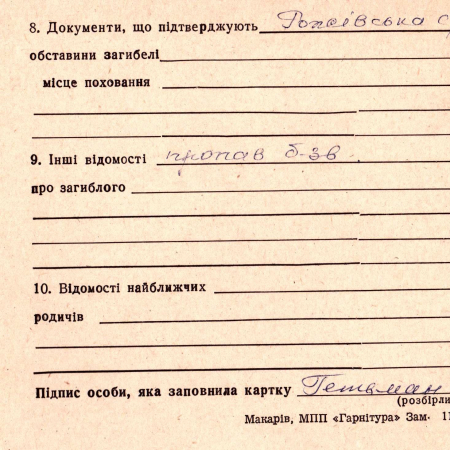 8. Документи, що підтверджують Рожівська с
обставини загибелі
місце поховання
9. Інші відомості пропав б-зв.
про загиблого
10. Відомості найближчих
родичів
Підпис особи, яка заповнила картку Гетьман
(розбірли
Макарів, МПП «Гарнітура» Зам. 11